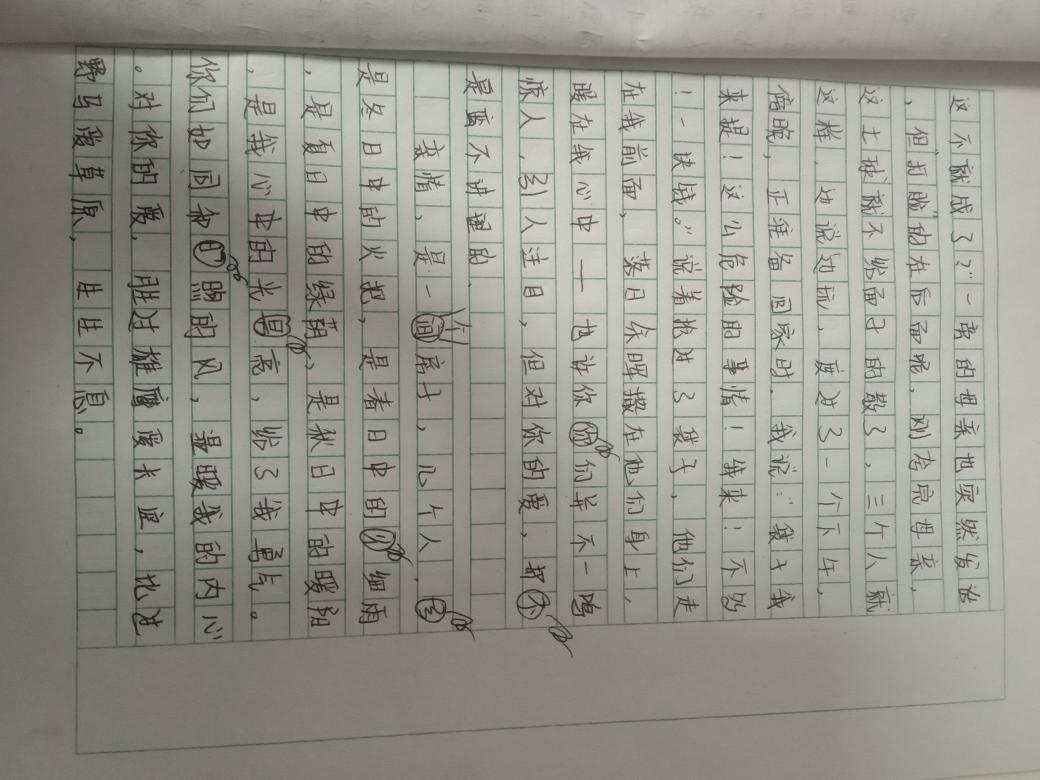 这不就成了？”一旁的母亲也突然发话
，但“打脸”的在后面呢，刚夸完母亲，
这土球就不给面子的散了，三个人就
这样，边说边玩，度过了一个下午。
傍晚，正准备回家时，我说：“我才我
来提！这么危险的事情！我来！不
！一决战。”说着抢过了袋子，他们走
在我前面，落日余晖撒在他们身上，
暖在我心中——也许你们并不一鸣
惊人，引人注目，但对你的爱，却
是蛮不讲理的。
亲情，是一间房子，几个人，
是冬日中的火把，是春日中的细雨
，是夏日中的绿荫，是秋日中的暖阳
，是我心中的光亮，给了我勇气。
你们如同和煦的风，温暖我的内心
。对你的爱，胜过雄鹰爱长空，也过
野马爱草原，生生不息。